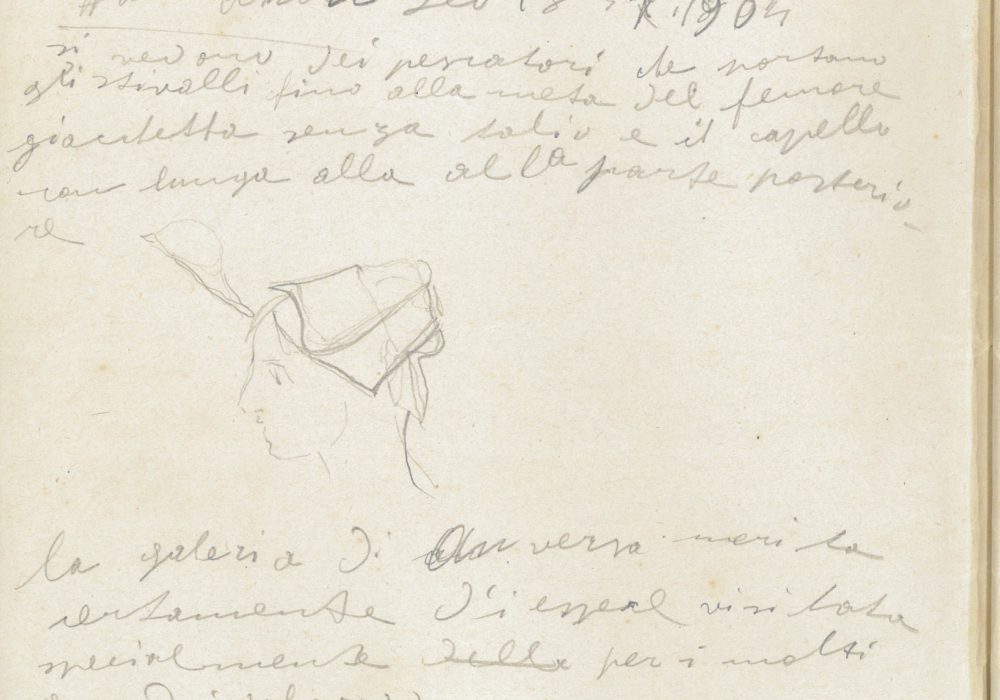 X 1904
si vedono dei pescatori che portano
gli stivalli fino alla meta del femore
giacchetta senza e il capello
con lunga alla alla parte posterio-
re
la galeria di Anversa merita
certamente d'i esseere visitata
specialmente della per i molti